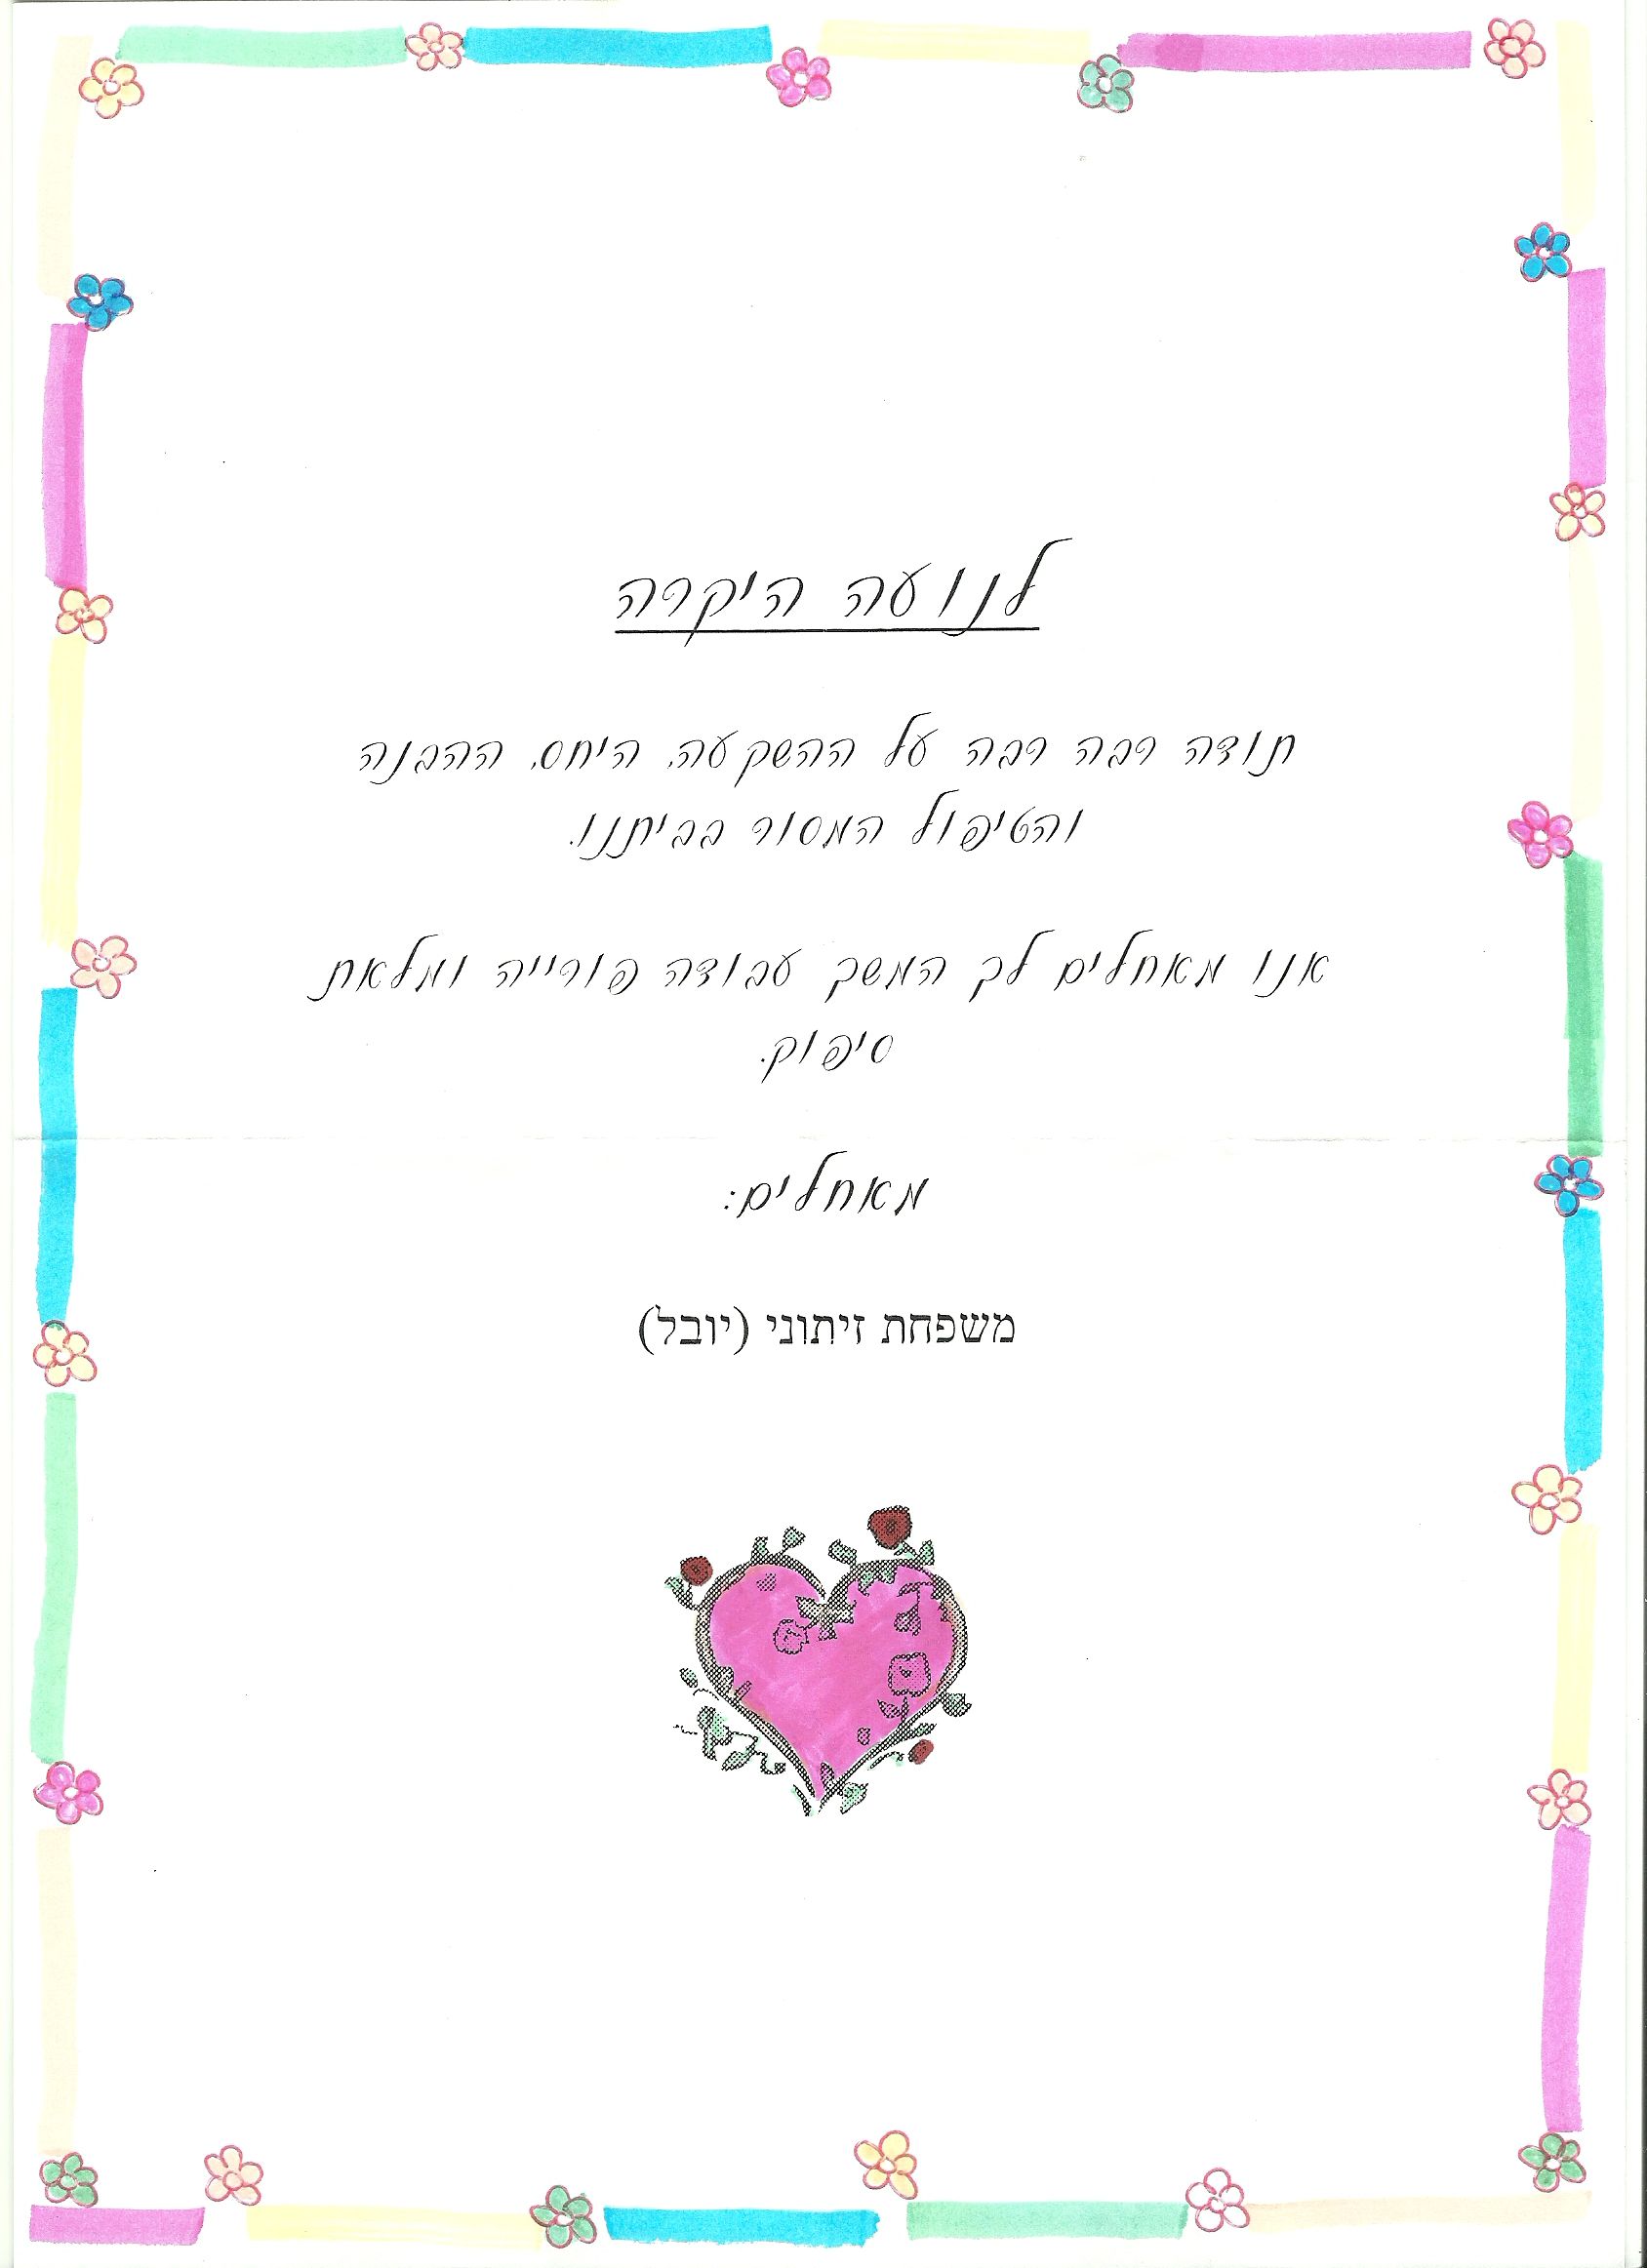 לנועה היקרה
תודה רבה רבה על ההשקעה, היחס, ההבנה
והטיפול המסור בביתנו.
אנו מאחלים לך המשך עבודה פורייה ומלאת
סיפוק.
מאחלים:
משפחת זיתוני (יובל)